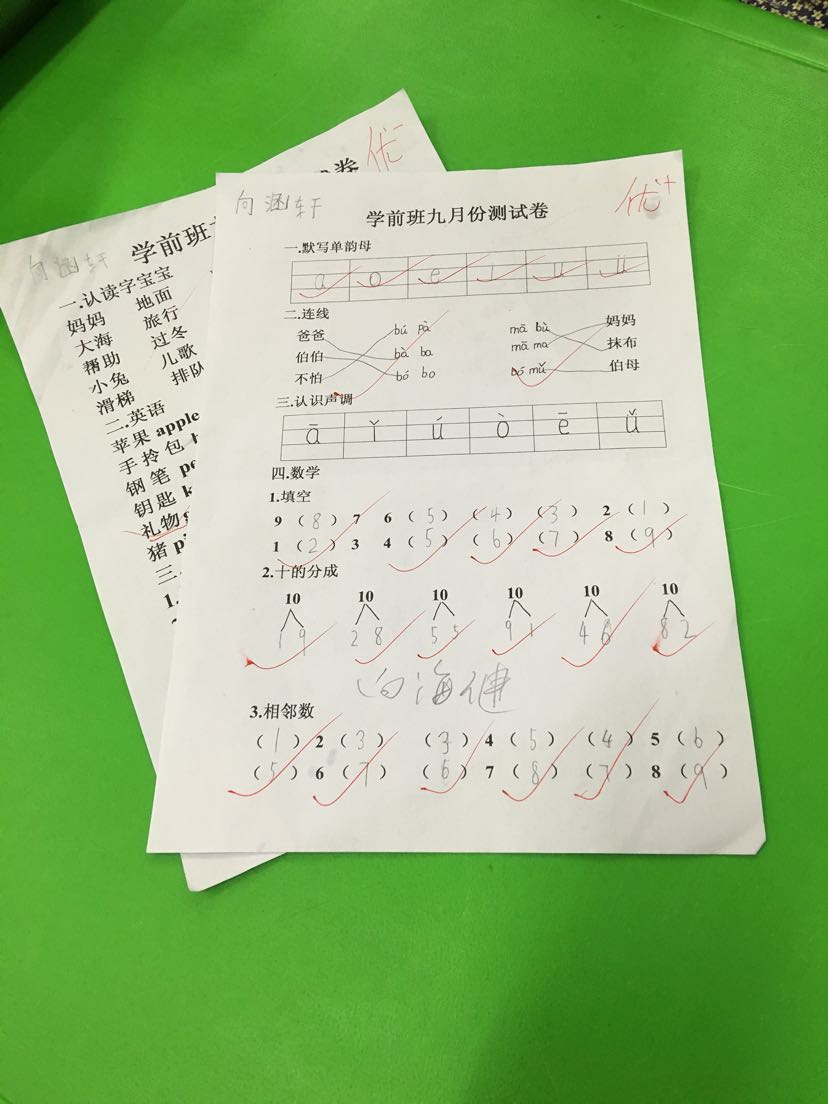 向涵轩
学前班九月份测试卷
优+
一.默写单韵母
a o e i u ü
二.连线
爸爸 bú pà mā bù 妈妈
伯伯 bà ba mā ma 抹布
不怕 bó bo bó mǔ 伯母
三.认识声调
ā ǐ ú ò ē ǚ
四.数学
1.填空
9 (8) 7 6 (5) (4) (3) 2 (1)
1 (2) 3 4 (5) (6) (7) 8 (9)
2.十的分成
10 10 10 10 10 10
1 9 2 8 5 5 9 1 4 6 8 2
向海健
3.相邻数
(1) 2 (3) (3) 4 (5) (4) 5 (6)
(5) 6 (7) (6) 7 (8) (7) 8 (9)
向涵轩
学前班
卷
优-
一.认读字宝宝
妈妈 地面
大海 旅行
帮助 过冬
小兔 儿歌
滑梯 排队
二.英语
苹果 apple
手拎包
钢笔 pe
钥匙 k
礼物
猪 pi
三.
1.